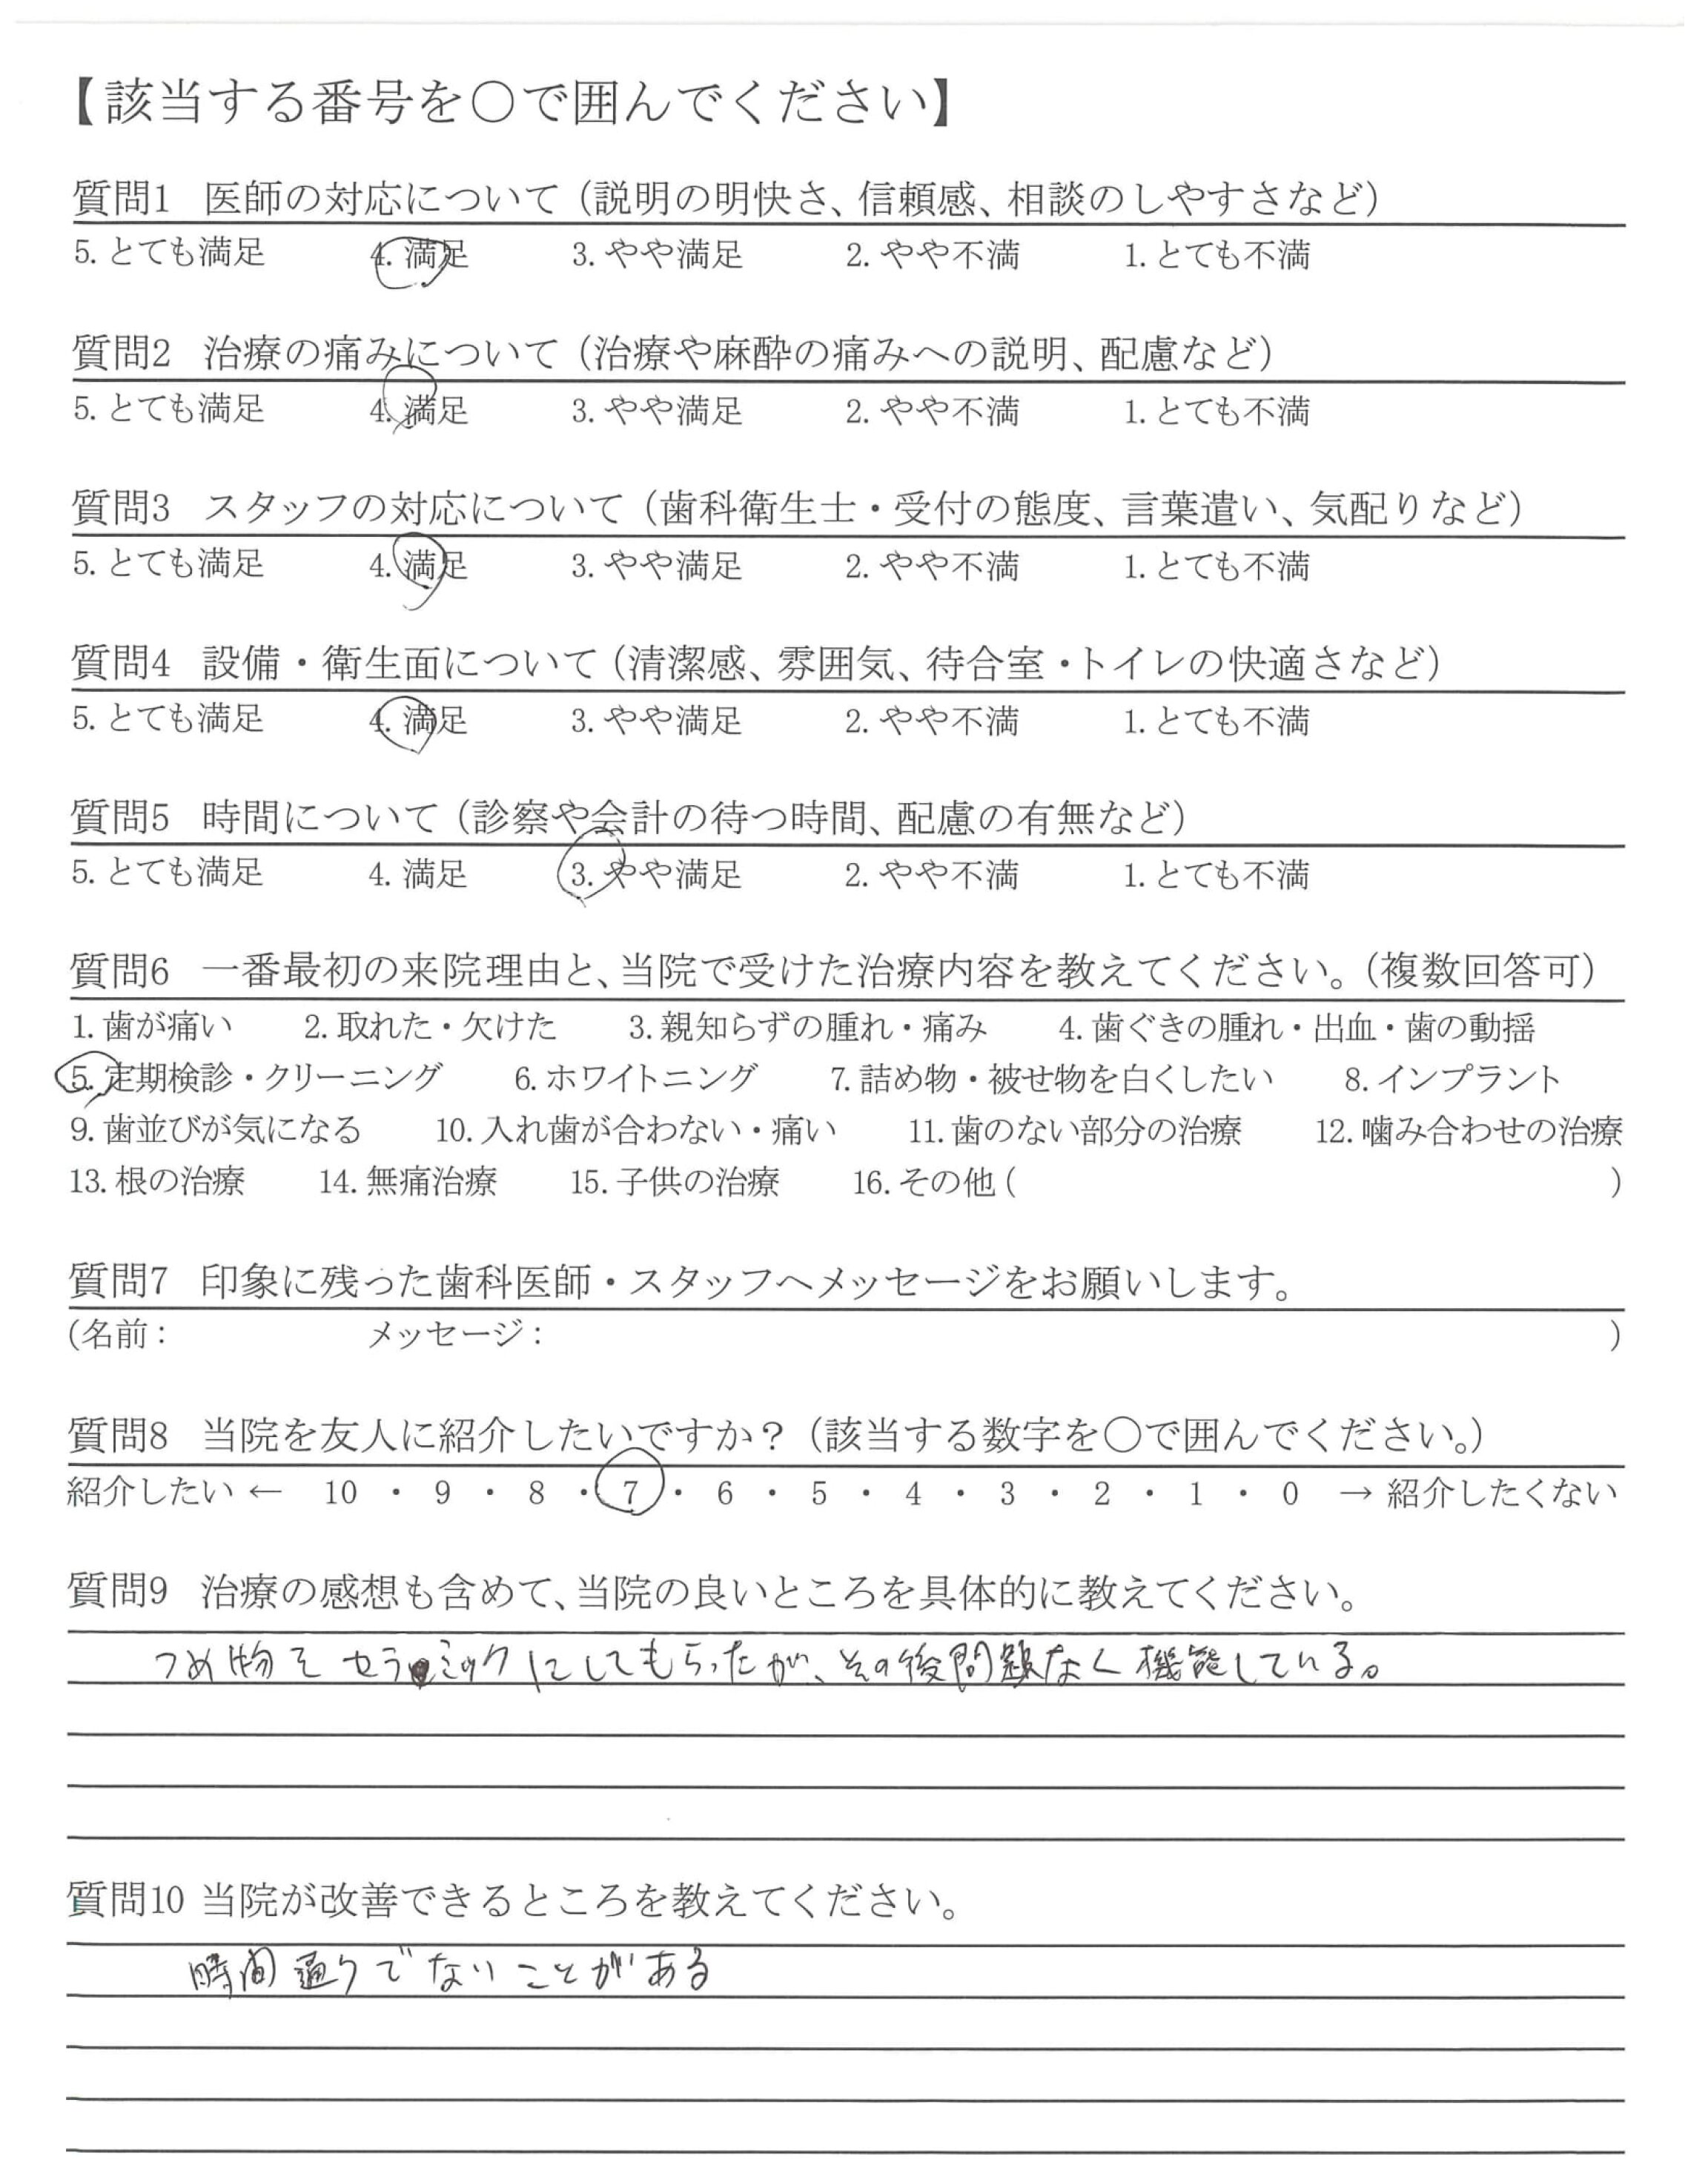 【該当する番号を○で囲んでください】
質問1 医師の対応について（説明の明快さ、信頼感、相談のしやすさなど）
5. とても満足 4. 満足 3. やや満足 2. やや不満 1. とても不満
質問2 治療の痛みについて（治療や麻酔の痛みへの説明、配慮など）
5. とても満足 4. 満足 3. やや満足 2. やや不満 1. とても不満
質問3 スタッフの対応について（歯科衛生士・受付の態度、言葉遣い、気配りなど）
5. とても満足 4. 満足 3. やや満足 2. やや不満 1. とても不満
質問4 設備・衛生面について（清潔感、雰囲気、待合室・トイレの快適さなど）
5. とても満足 4. 満足 3. やや満足 2. やや不満 1. とても不満
質問5 時間について（診察や会計の待つ時間、配慮の有無など）
5. とても満足 4. 満足 3. やや満足 2. やや不満 1. とても不満
質問6 一番最初の来院理由と、当院で受けた治療内容を教えてください。（複数回答可）
1. 歯が痛い 2. 取れた・欠けた 3. 親知らずの腫れ・痛み 4. 歯ぐきの腫れ・出血・歯の動揺
5. 定期検診・クリーニング 6. ホワイトニング 7. 詰め物・被せ物を白くしたい 8. インプラント
9. 歯並びが気になる 10. 入れ歯が合わない・痛い 11. 歯のない部分の治療 12. 噛み合わせの治療
13. 根の治療 14. 無痛治療 15. 子供の治療 16. その他（ ）
質問7 印象に残った歯科医師・スタッフへメッセージをお願いします。
（名前： メッセージ： ）
質問8 当院を友人に紹介したいですか？（該当する数字を○で囲んでください。）
紹介したい ← 10 ・ 9 ・ 8 ・ 7 ・ 6 ・ 5 ・ 4 ・ 3 ・ 2 ・ 1 ・ 0 → 紹介したくない
質問9 治療の感想も含めて、当院の良いところを具体的に教えてください。
つめ物をセラミックにしてもらったが、その後問題なく機能している。
質問10 当院が改善できるところを教えてください。
時間通りでないことがある